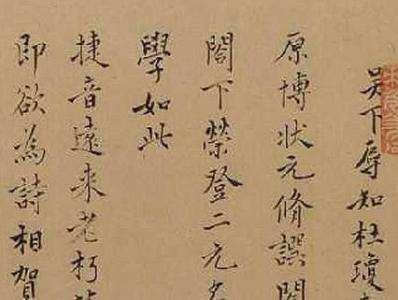 吳下辱知杜瓊
原博狀元脩譔閣
閤下榮登二元名
學如此
捷音遠来老朽
即欲為詩相賀